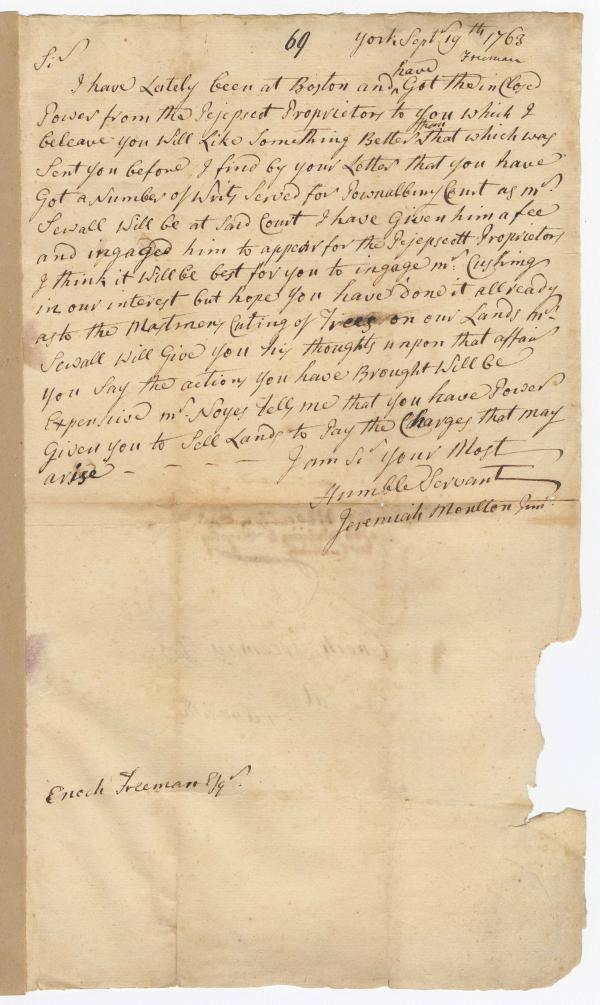 69
York Septr 19th 1763
Freeman
Sir
I have Lately been at Boston and have Got the inClosed
Power from the Pejepscot Proprietors to you which I
beleave you Will Like Something Better than that which was
Sent you before I find by your Letter that you have
Got a Number of Writs Served for Pownalbury Court as mr
Sewall Will be at Said Court I have Given him a fee
and ingaged him to appear for the Pejepscott Proprietors
I think it Will be best for you to ingage mr Cushing
in our interest but hope you have done it allready
as to the Mastmens Cuting of Trees on our Lands mr
Sewall Will Give you his thoughts unpon that affair
you Say the actions you have Brought Will be
Expensive mr Noyes tells me that you have Power
Given you to Sell Lands to Pay the Charges that may
arise - - - - I am Sir your Most
Humble Servant
Jeremiah Moulton Junr
Enoch Freeman Esqr